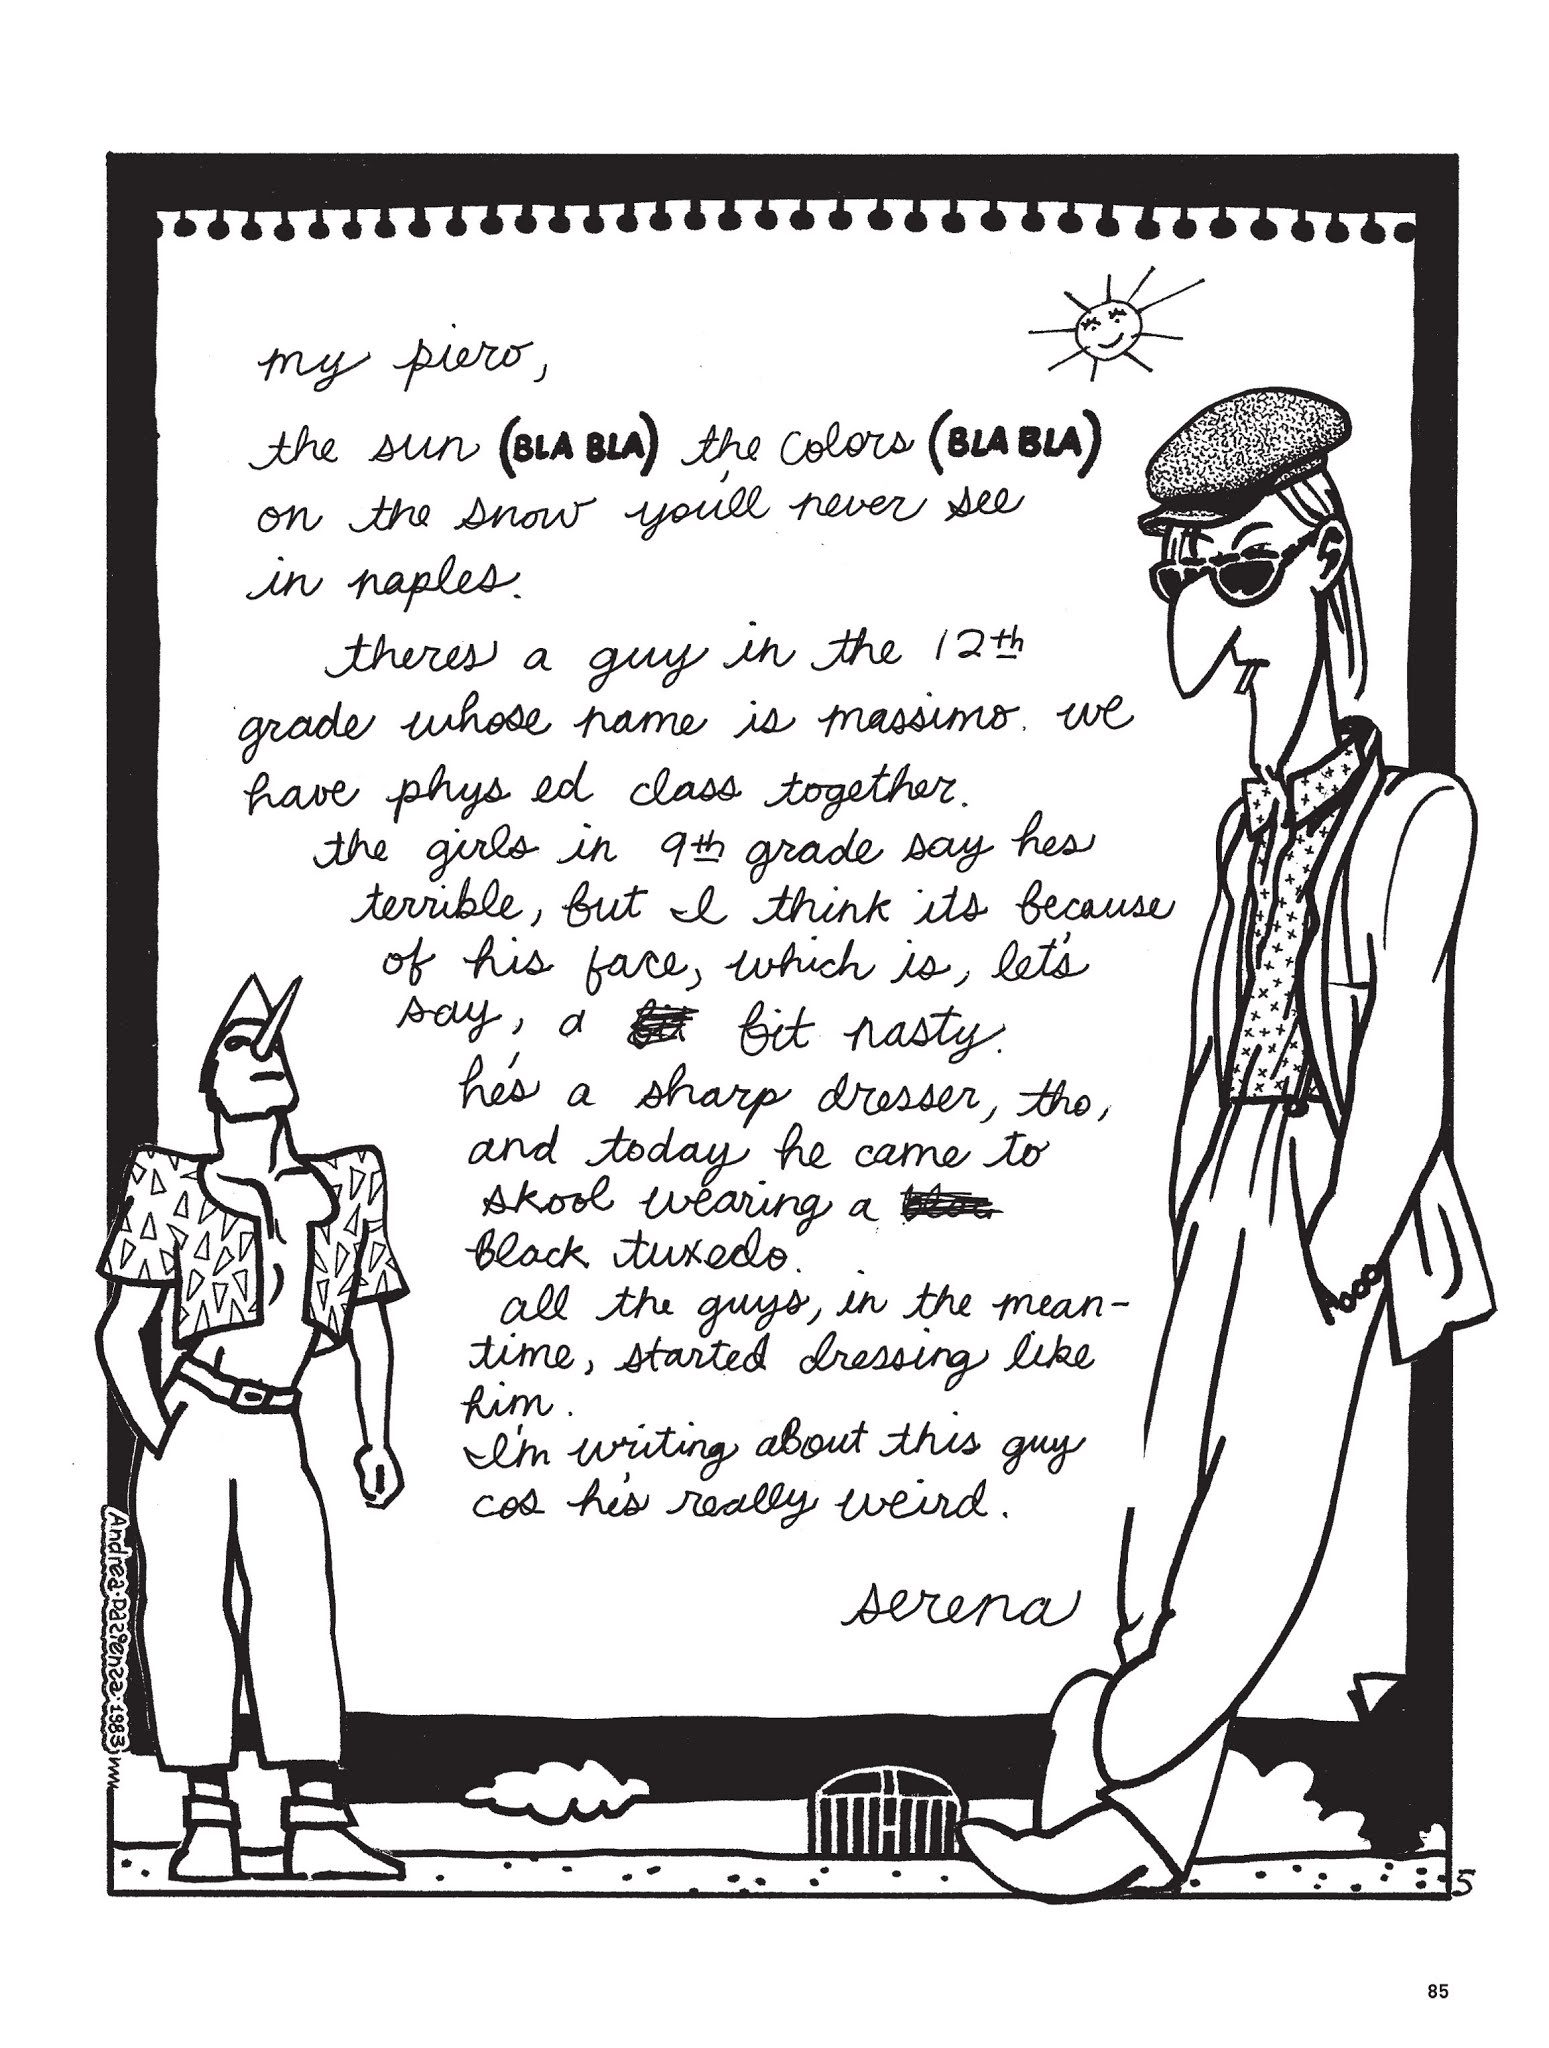 my piero,
the sun (BLA BLA) the colors (BLA BLA)
on the snow you'll never see
in naples.
theres a guy in the 12th
grade whose name is massimo. we
have phys ed class together.
the girls in 9th grade say hes
terrible, but I think its because
of his face, which is, let's
say, a bit nasty.
he's a sharp dresser, tho,
and today he came to
skool wearing a
black tuxedo.
all the guys, in the mean-
time, started dressing like
him.
I'm writing about this guy
cos he's really weird.
serena
Andrea·pazienza·1983
5
85